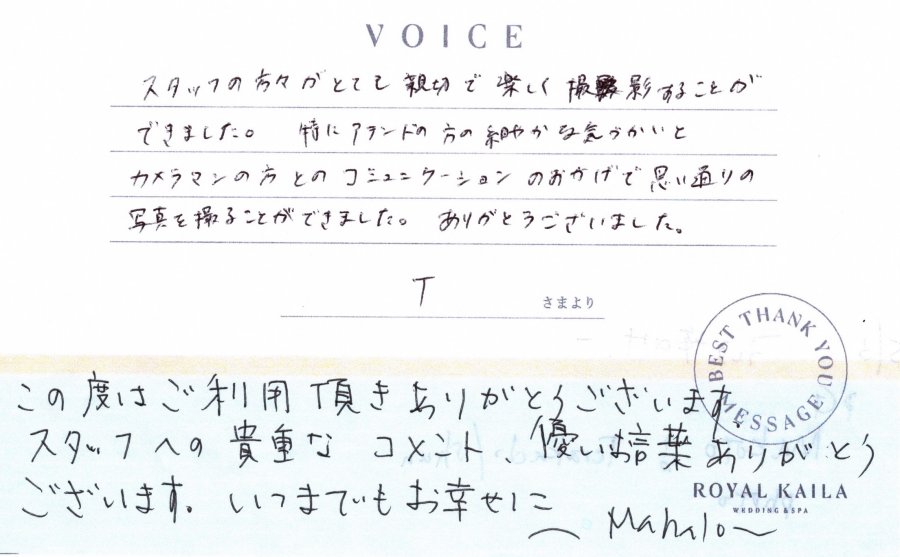 VOICE
スタッフの方々がとても親切で楽しく撮影することが
できました。 特にアテンドの方の細やかな気づかいと
カメラマンの方とのコミュニケーションのおかげで思い通りの
写真を撮ることができました。 ありがとうございました。
T さまより
BEST THANK YOU MESSAGE
この度はご利用頂きありがとうございます。
スタッフへの貴重なコメント、優しいお言葉ありがとう
ございます。いつまでもお幸せに
ROYAL KAILA
WEDDING & SPA
〜 Mahalo〜